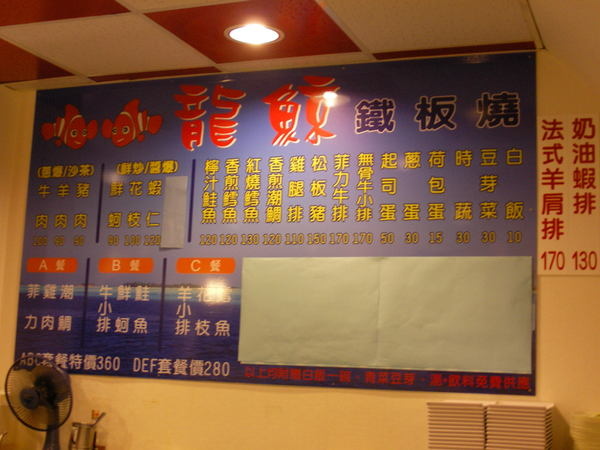 龍鯨 鐵板燒
(蔥爆/沙茶)
牛肉 100
羊肉 90
豬肉 90
(鮮炒/醬爆)
鮮蚵 90
花枝 100
蝦仁 120
檸汁鮭魚 120
香煎鱈魚 120
紅燒鱈魚 130
香煎潮鯛 120
雞腿排 110
松板豬 150
菲力牛排 170
無骨牛小排 170
起司蛋 50
蔥蛋 30
荷包蛋 15
時蔬 30
豆芽菜 30
白飯 10
A餐
菲力
雞肉
潮鯛
B餐
牛小排
鮮蚵
鮭魚
C餐
羊小排
花枝
鱈魚
ABC套餐特價360 DEF套餐價280
以上均附白飯一碗、青菜豆芽、湯、飲料免費供應
奶油蝦排 130
法式羊肩排 170